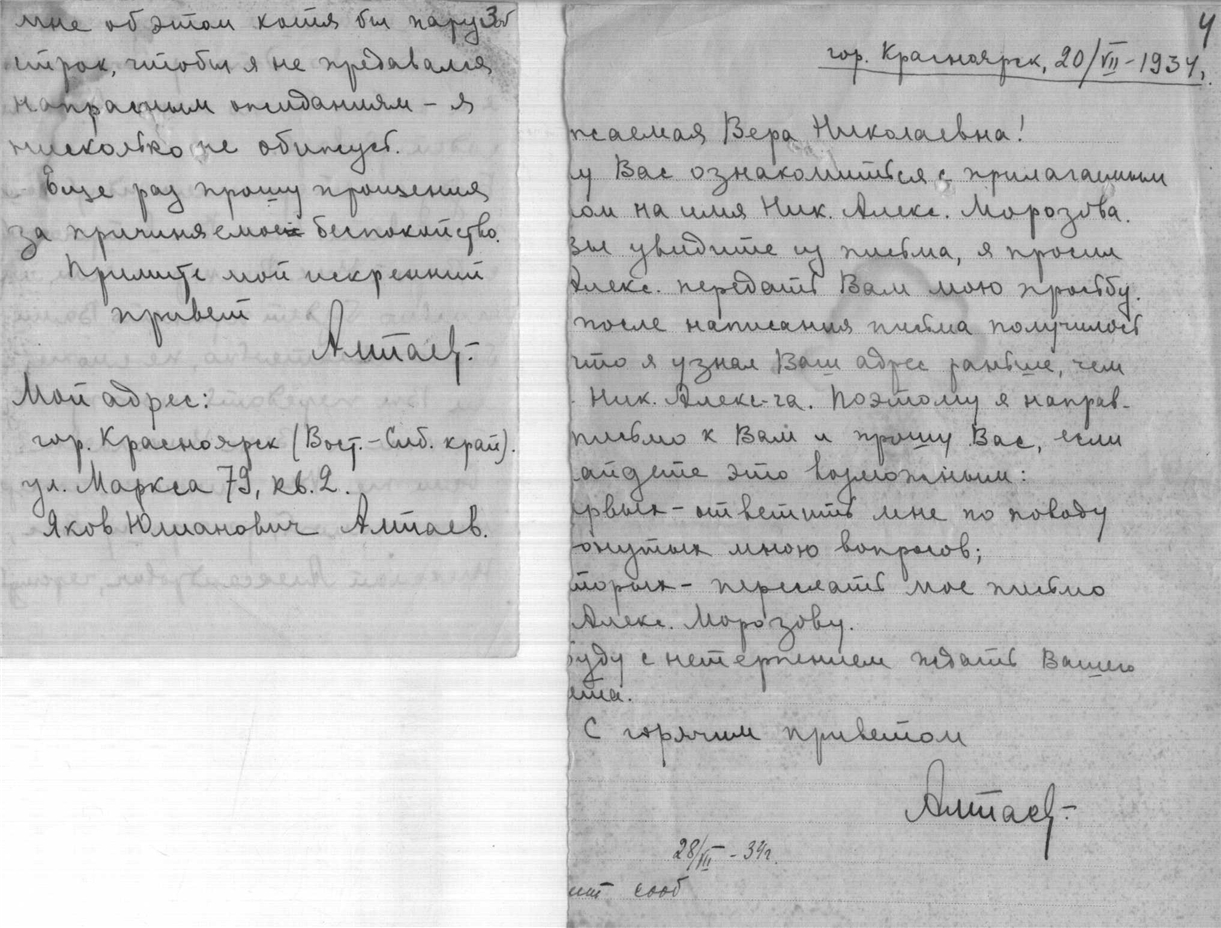 3
мне об этом хотя бы пару
строк, чтобы я не предавался
напрасным ожиданиям – я
нисколько не обижусь.
Еще раз прошу прощения
за причиняемое беспокойство.
Примите мой искренний
привет
Алтаев.–
Мой адрес:
гор. Красноярск (Вост.-Сиб. край).
ул. Маркса 79, кв. 2.
Яков Юлианович Алтаев.
4
гор. Красноярск, 20/VII-1934,
жаемая Вера Николаевна!
у Вас ознакомиться с прилагаемым
ом на имя Ник. Алекс. Морозова.
вы увидите из письма, я просил
Алекс. передать Вам мою просьбу.
после написания письма получилось
что я узнал Ваш адрес раньше, чем
Ник. Алекс-ча. Поэтому я направ-
письмо к Вам и прошу Вас, если
айдете это возможным:
ервых – ответить мне по поводу
онутых мною вопросов;
торых – переслать мое письмо
Алекс. Морозову.
буду с нетерпением ждать Вашего
ета.
С горячим приветом
Алтаев.–
28/VII-34г.
сооб